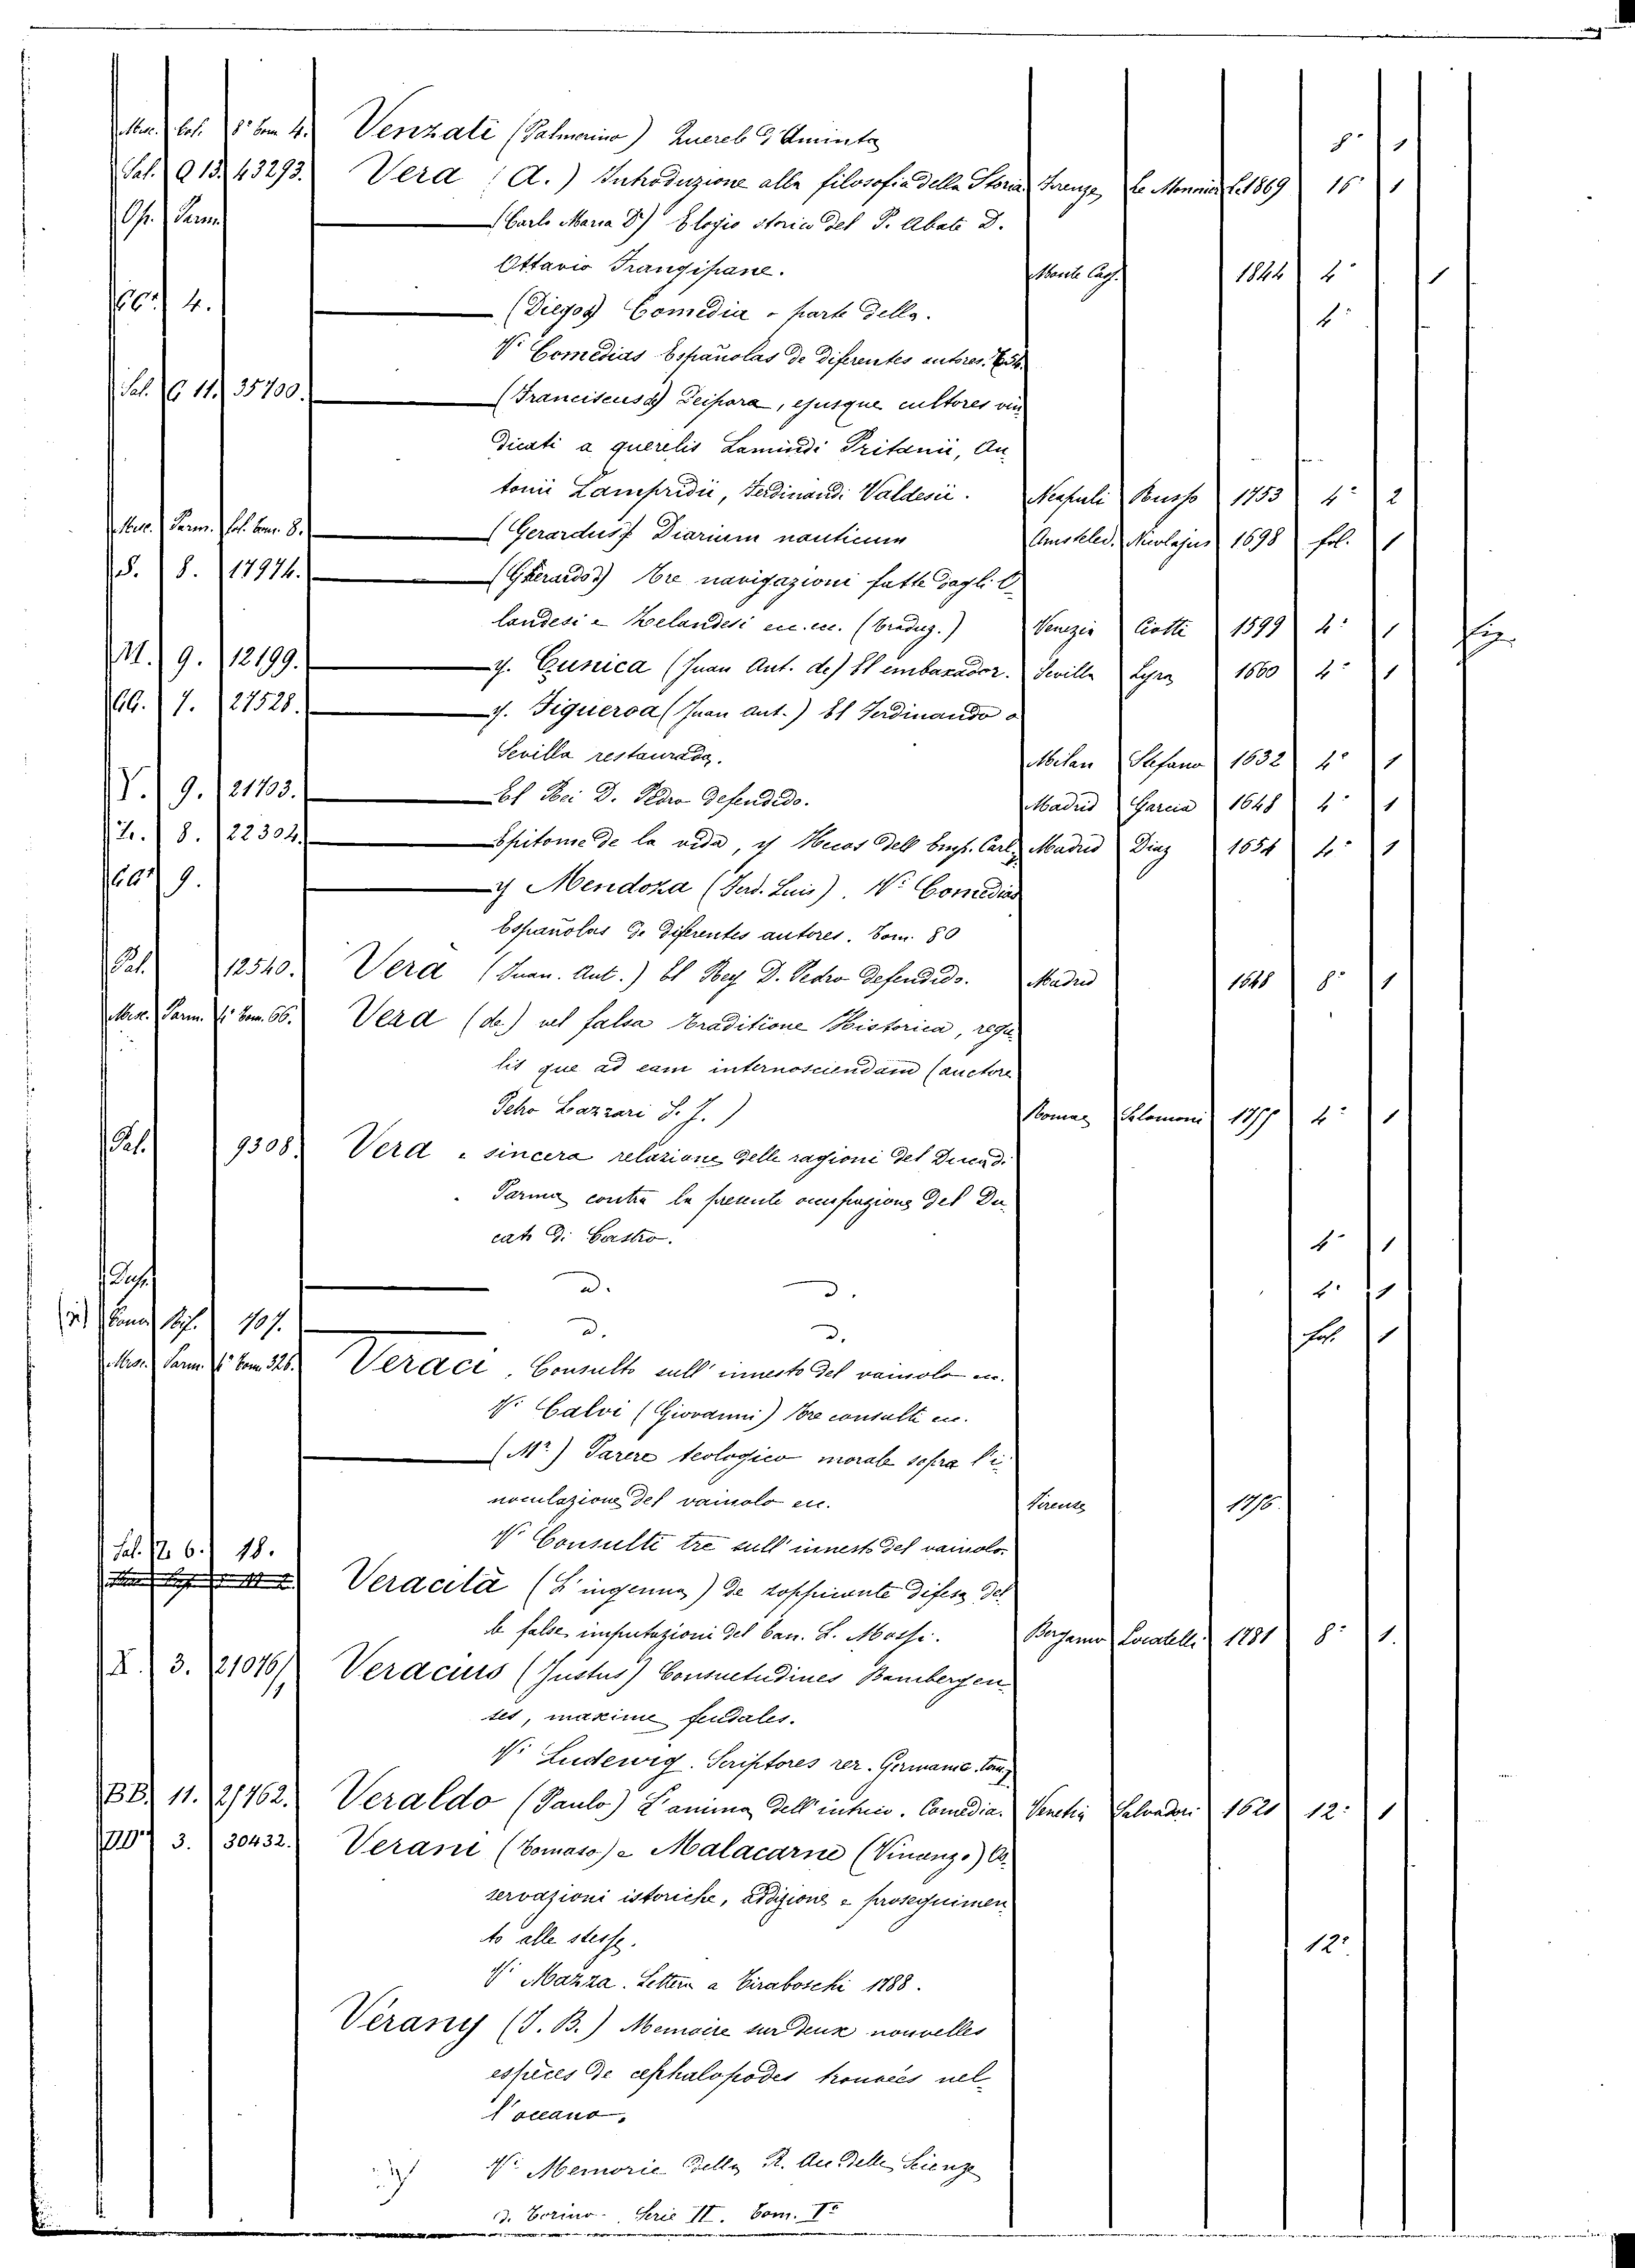 Misc. 8º tom 4. Venzati (Palmerino) Querele d'Aminta 8º 1
Sal. Q 13. 43293. Vera (A.) Introduzione alla filosofia della Storia Firenze Le Monnier S. 1869 16º 1
Parm. (Carlo Maria D.) Elogio storico del P. Abate D.
Ottavio Frangipane. Monte Cas. 1844 4º 1
4. (Diego) Comedia - parte della. 4º
Vº Comedias Españolas de diferentes autores.
Sal. G 11. 35700. (Franciscus) Deipara, ejusque cultores vin
dicati a querelis Lamindi Pritanii, An
tonii Lampridii, Ferdinandi Valdesii. Neapoli Russo 1753 4º 2
Misc. Parm. fol. tom. 8. (Gerardus) Diarium nauticum Amstelod. Nicolajus 1698 fol. 1
S. 8. 17974. (Gherardo) Tre navigazioni fatte dagli O
landesi e Zelandesi ec. ec. (traduz.) Venezia Ciotti 1599 4º 1 fig.
M. 9. 12199. y. Cunica (Juan Ant. de) El embaxador. Sevilla Lyra 1660 4º 1
GG. 7. 27528. y. Figueroa (Juan Ant.) El Ferdinando o
Sevilla restaurada. Milan Stefano 1632 4º 1
Y. 9. 21703. El Rei D. Pedro defendido. Madrid Garcia 1648 4º 1
Z. 8. 22304. Epitome de la vida, y Hecos dell Emp. Carl. Madrid Diaz 1654 4º 1
9. y Mendoza (Ferd. Luis). Vº Comedias
Españolas de diferentes autores. Tom. 80
Pal. 12540. Vera (Juan. Ant.) El Rey D. Pedro defendido. Madrid 1648 8º 1
Misc. Parm. 4º tom. 66. Vera (de) vel falsa traditione Historica, regu
lis que ad eam internoscendam (auctore
Petro Lazzari S. J.) Romae Salomoni 1777 4º 1
Pal. 9308. Vera e sincera relazione delle ragioni del Duca di
Parma contra la presente occupazione del Du
cato di Castro. 4º 1
Dup. d. d. 4º 1
107. d. d. fol. 1
Misc. Parm. 4º tom 326. Veraci. Consulto sull'innesto del vaiuolo ec.
Vº Calvi (Giovanni) Tre consulti ec.
(Mr.) Parere teologico morale sopra l'i
noculazione del vaiuolo ec. Firenze 1776.
Vº Consulti tre sull'innesto del vaiuolo.
Sal. Z 6. 18.
Veracità (L'ingenua) de difesa del
le false imputazioni del Can. L. Mossi. Bergamo Locatelli 1781 8º 1.
X. 3. 21076/1 Veracius (Justus) Consuetudines Bambergen
ses, maxime feudales.
Vº Ludewig. Scriptores rer. Germanic. tom.
BB. 11. 27462. Veraldo (Paulo) L'anima dell'intrico. Comedia. Venetia Salvadori 1621 12º 1
DD. 3. 30432. Verani (Tomaso) e Malacarne (Vincenzo) Os
servazioni istoriche, addizione e proseguimen
to alle stesse. 12º
Vº Mazza. Lettera a Tiraboschi 1788.
Verany (J. B.) Memoire sur deux nouvelles
espèces de cephalopodes trouvées nel
l'oceano.
Vº Memorie della R. Ac. delle Scienze
di Torino. Serie II. Tom. Iº